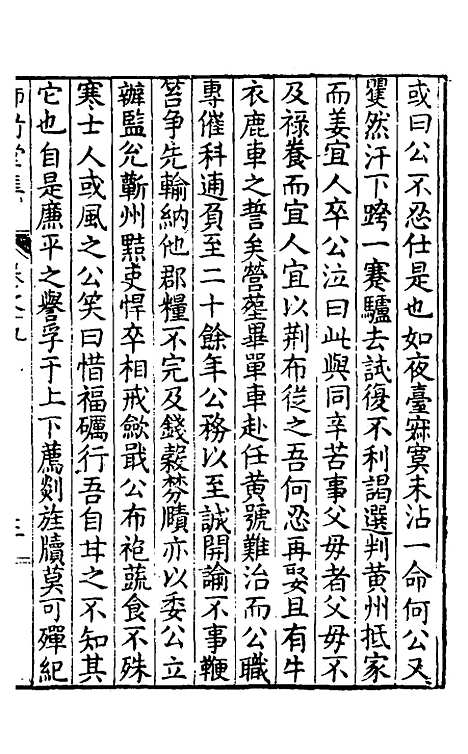 或曰公不忍仕是也如夜臺寂寞未沾一命何公又
矍然汗下跨一蹇驢去試復不利謁選判黃州抵家
而姜宜人卒公泣曰此與同辛苦事父毋者父毋不
及祿養而宜人宜以荆布從之吾何忍再娶且有牛
衣鹿車之誓矣營塟畢單車赴任黃號難治而公職
專催科逋負至二十餘年公務以至誠開諭不事鞭
笞争先輸納他郡糧不完及錢穀棼牘亦以委公立
辦監兊蘄州黠吏悍卒相戒歛戢公布袍蔬食不殊
寒士人或風之公笑曰惜福礪行吾自甘之不知其
它也自是廉平之譽孚于上下薦剡旌牘莫可殫紀